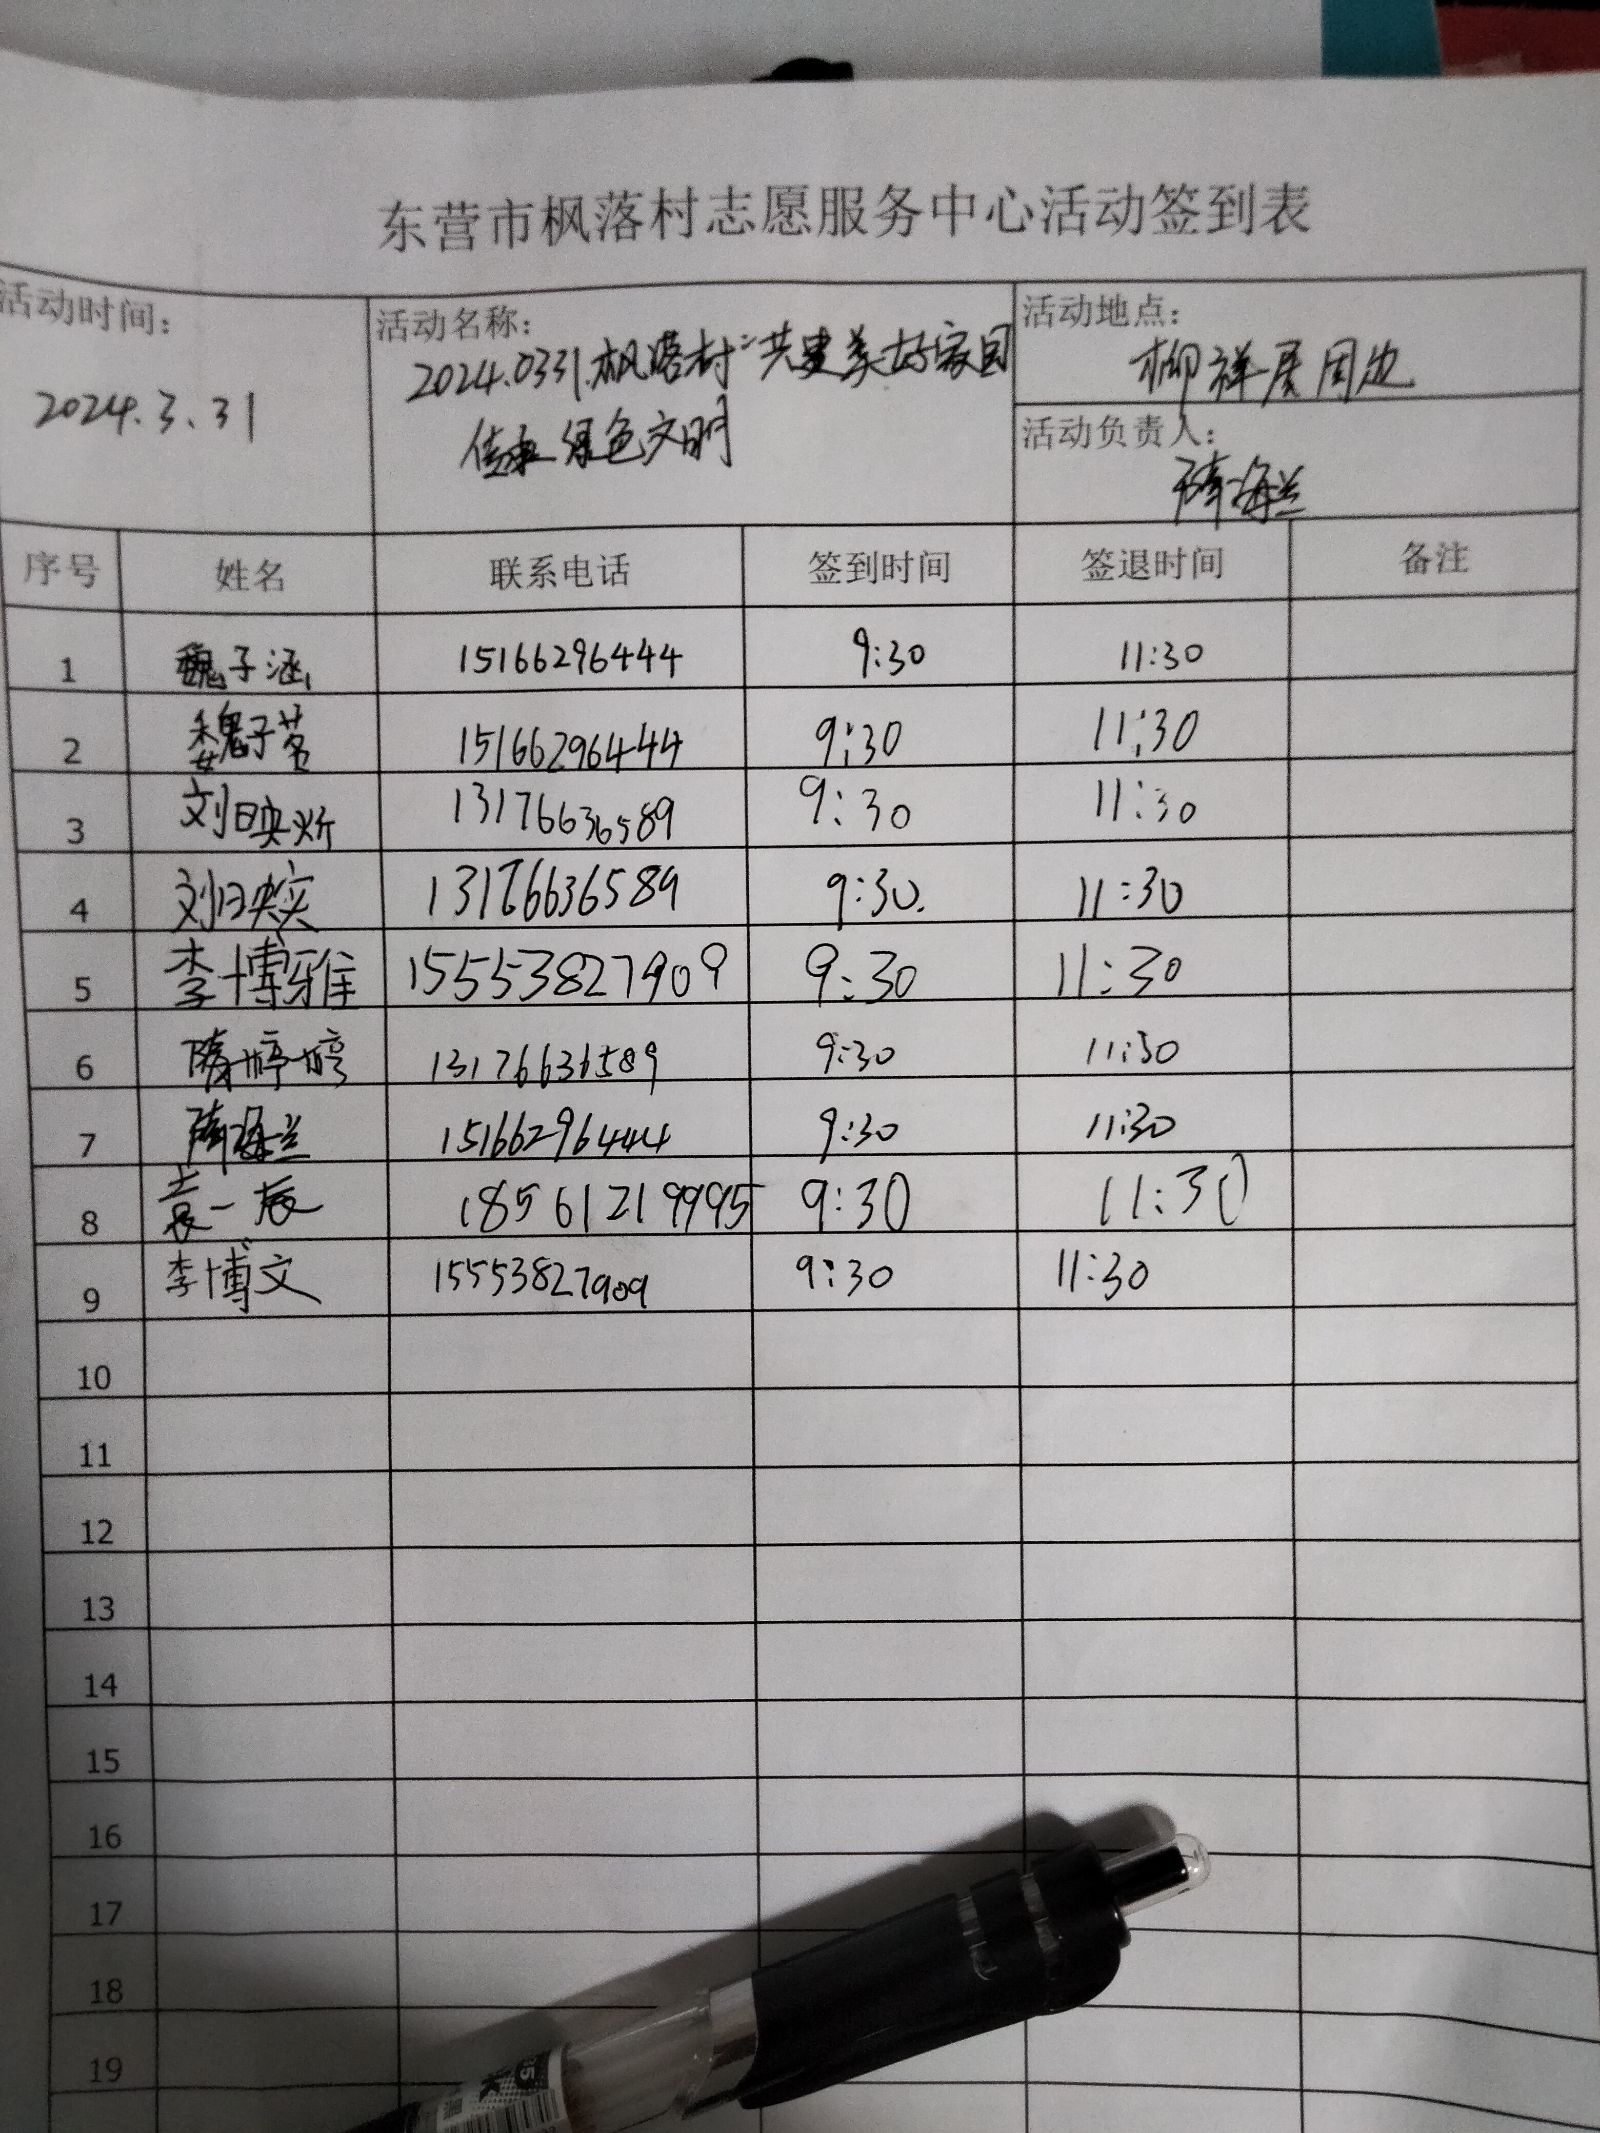 东营市枫落村志愿服务中心活动签到表
活动时间：
2024.3.31
活动名称：
2024.0331.枫落村“共建美好家园
传承绿色文明
活动地点：
柳祥居周边
活动负责人：
隋海兰
序号 姓名 联系电话 签到时间 签退时间 备注
1 魏子涵 15166296444 9:30 11:30
2 魏子茗 15166296444 9:30 11:30
3 刘映忻 13176636589 9:30 11:30
4 刘映奕 13176636589 9:30. 11:30
5 李博雅 15553827909 9:30 11:30
6 隋婷婷 13176636589 9:30 11:30
7 隋海兰 15166296444 9:30 11:30
8 袁一辰 18561219995 9:30 11:30
9 李博文 15553827909 9:30 11:30
10
11
12
13
14
15
16
17
18
19